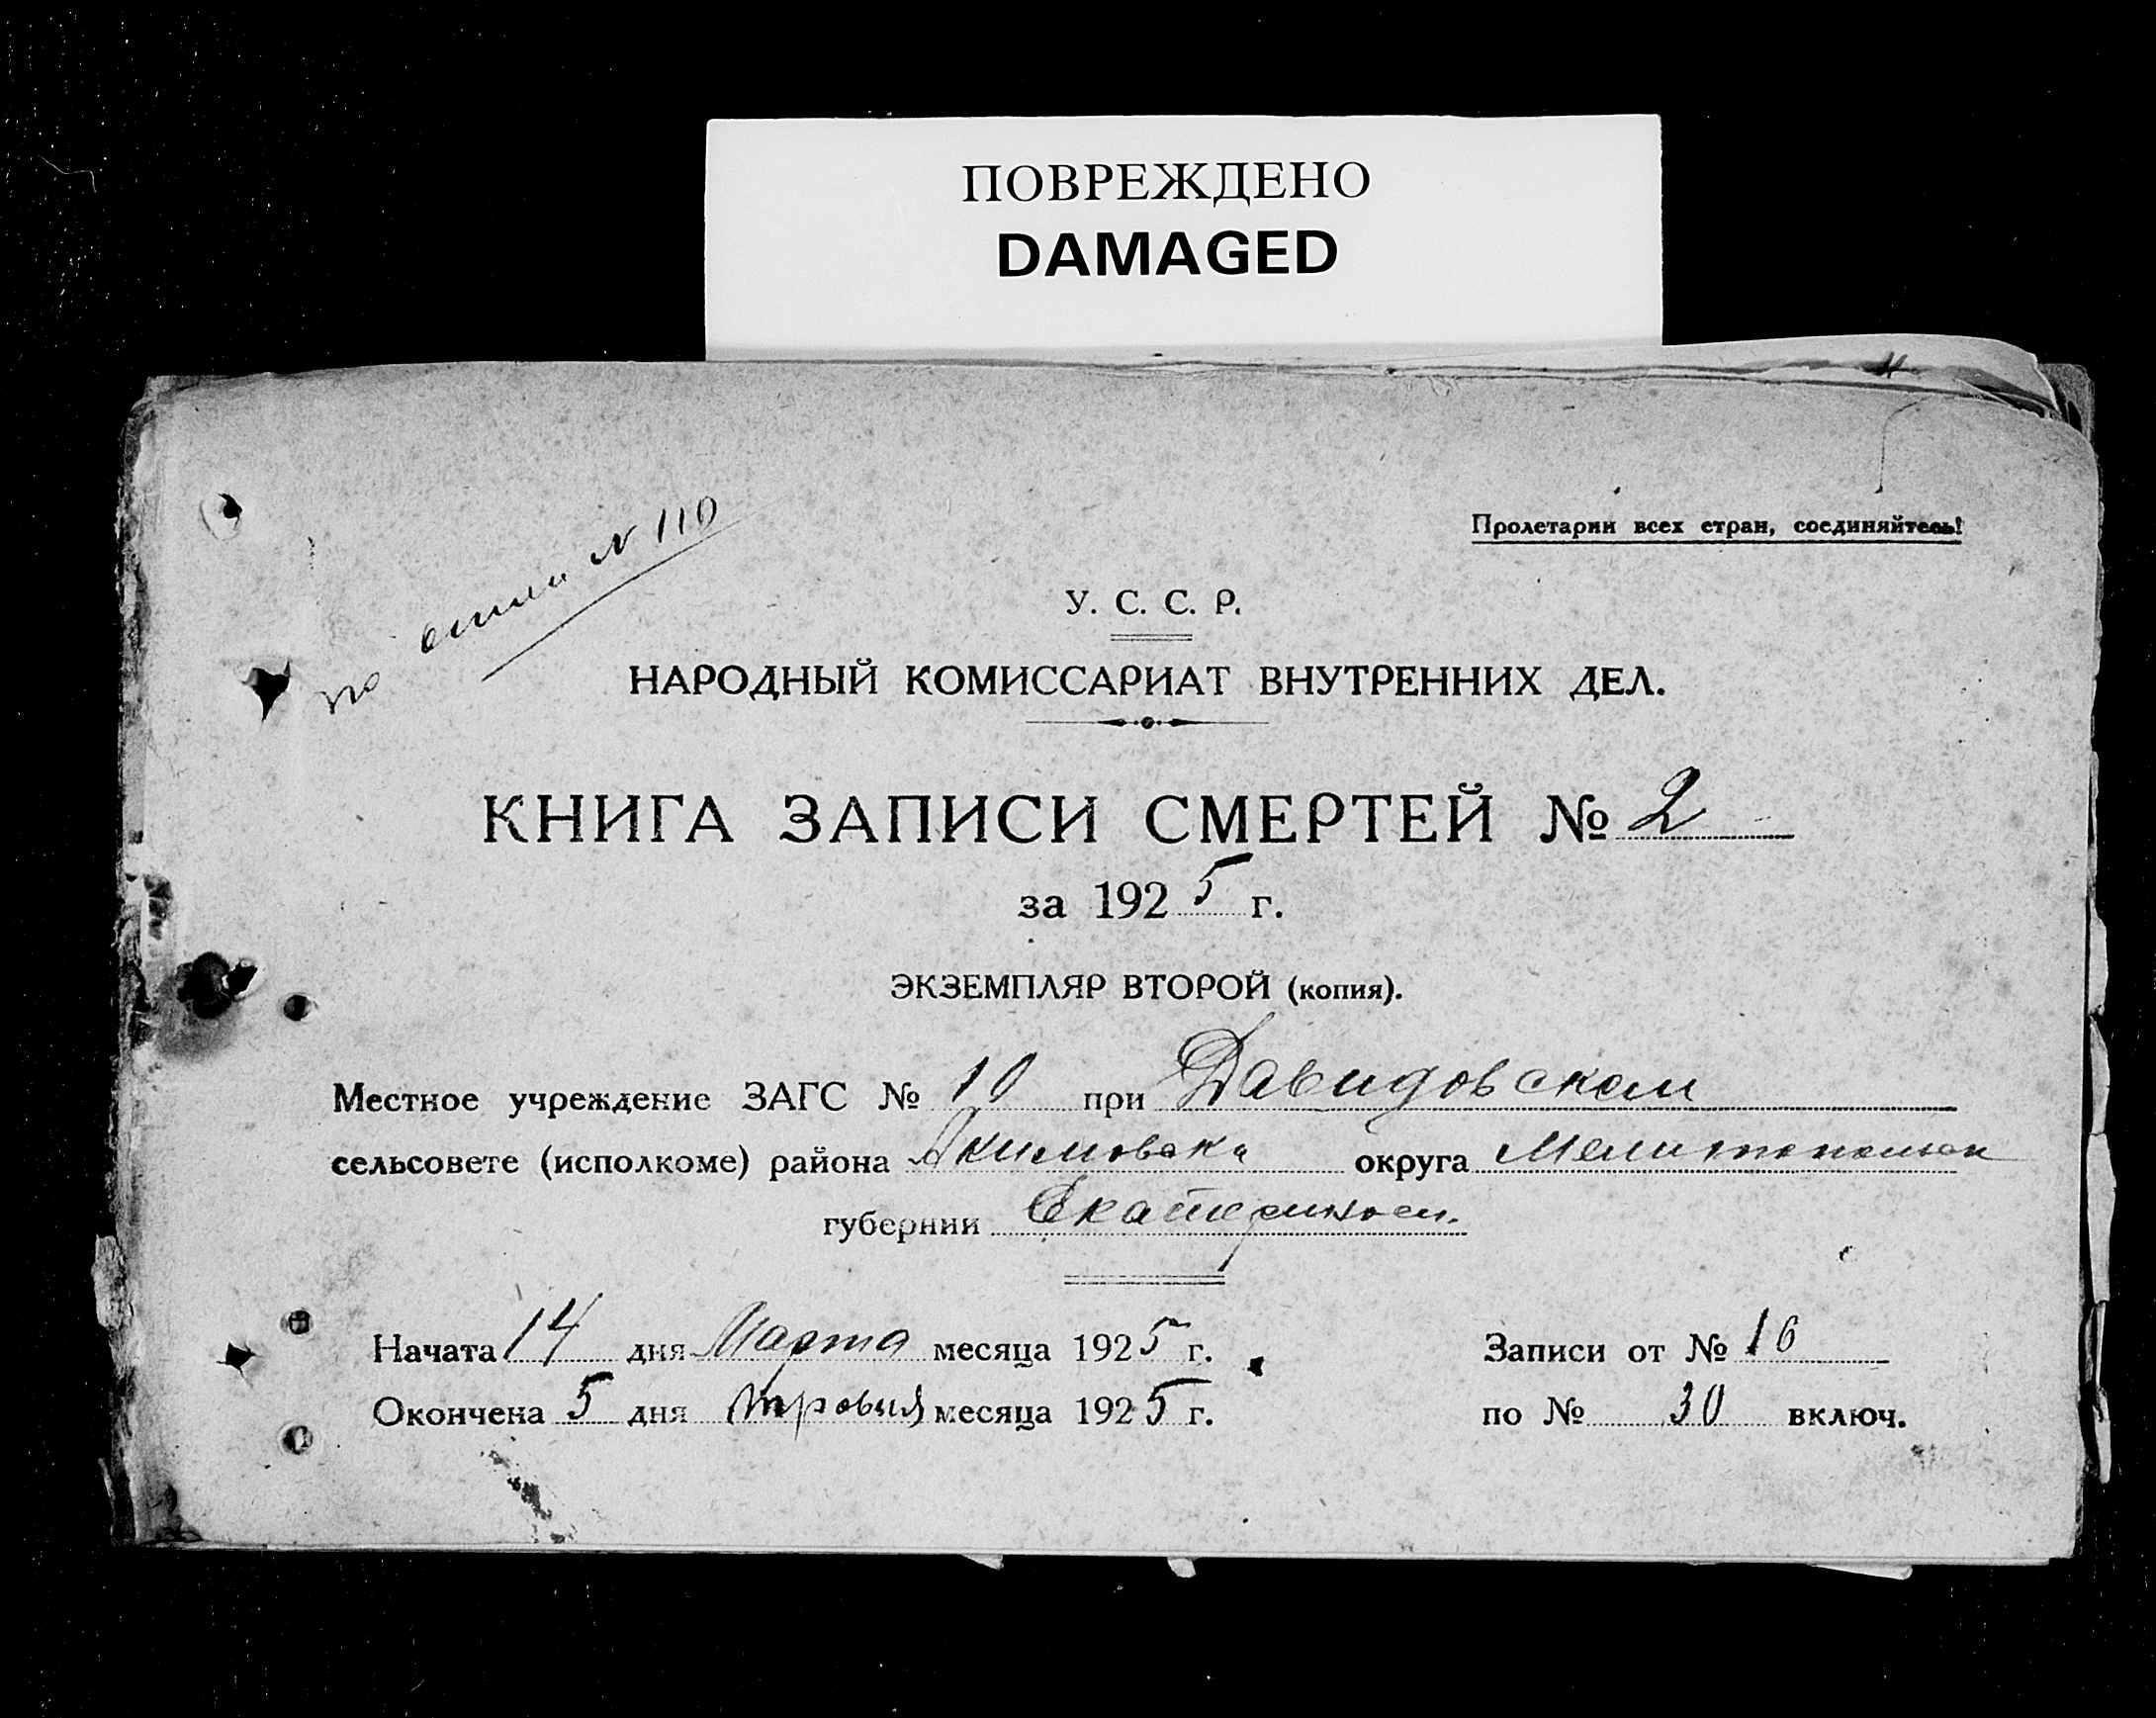 ПОВРЕЖДЕНО
DAMAGED
по описи № 110
Пролетарии всех стран, соединяйтесь!
У. С. С. Р.
НАРОДНЫЙ КОМИССАРИАТ ВНУТРЕННИХ ДЕЛ.
КНИГА ЗАПИСИ СМЕРТЕЙ № 2
за 1925 г.
ЭКЗЕМПЛЯР ВТОРОЙ (копия).
Местное учреждение ЗАГС № 10 при Давидовском
сельсовете (исполкоме) района Акимовск округа Мелитопольск
губернии Екатериносл.
Начата 14 дня Марта месяца 1925 г. Записи от № 16
Окончена 5 дня месяца 1925 г. по № 30 включ.